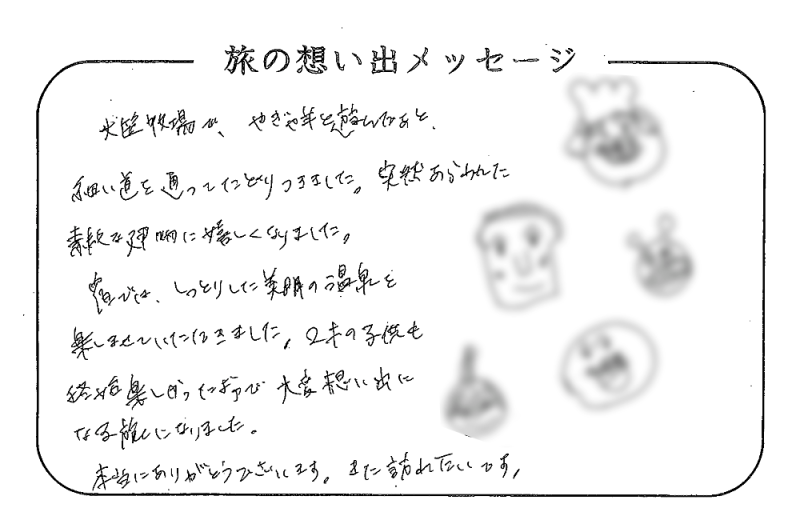 旅の想い出メッセージ
牧場が、やぎや羊と遊んだあと、
細い道を通ってたどりつきました。突然あらわれた
素敵な建物に嬉しくなりました。
宿では、しっとりした美肌の温泉を
楽しませていただきました。2才の子供も
終始楽しかったようで大変想い出に
なる旅になりました。
本当にありがとうございます。また訪れたいです。